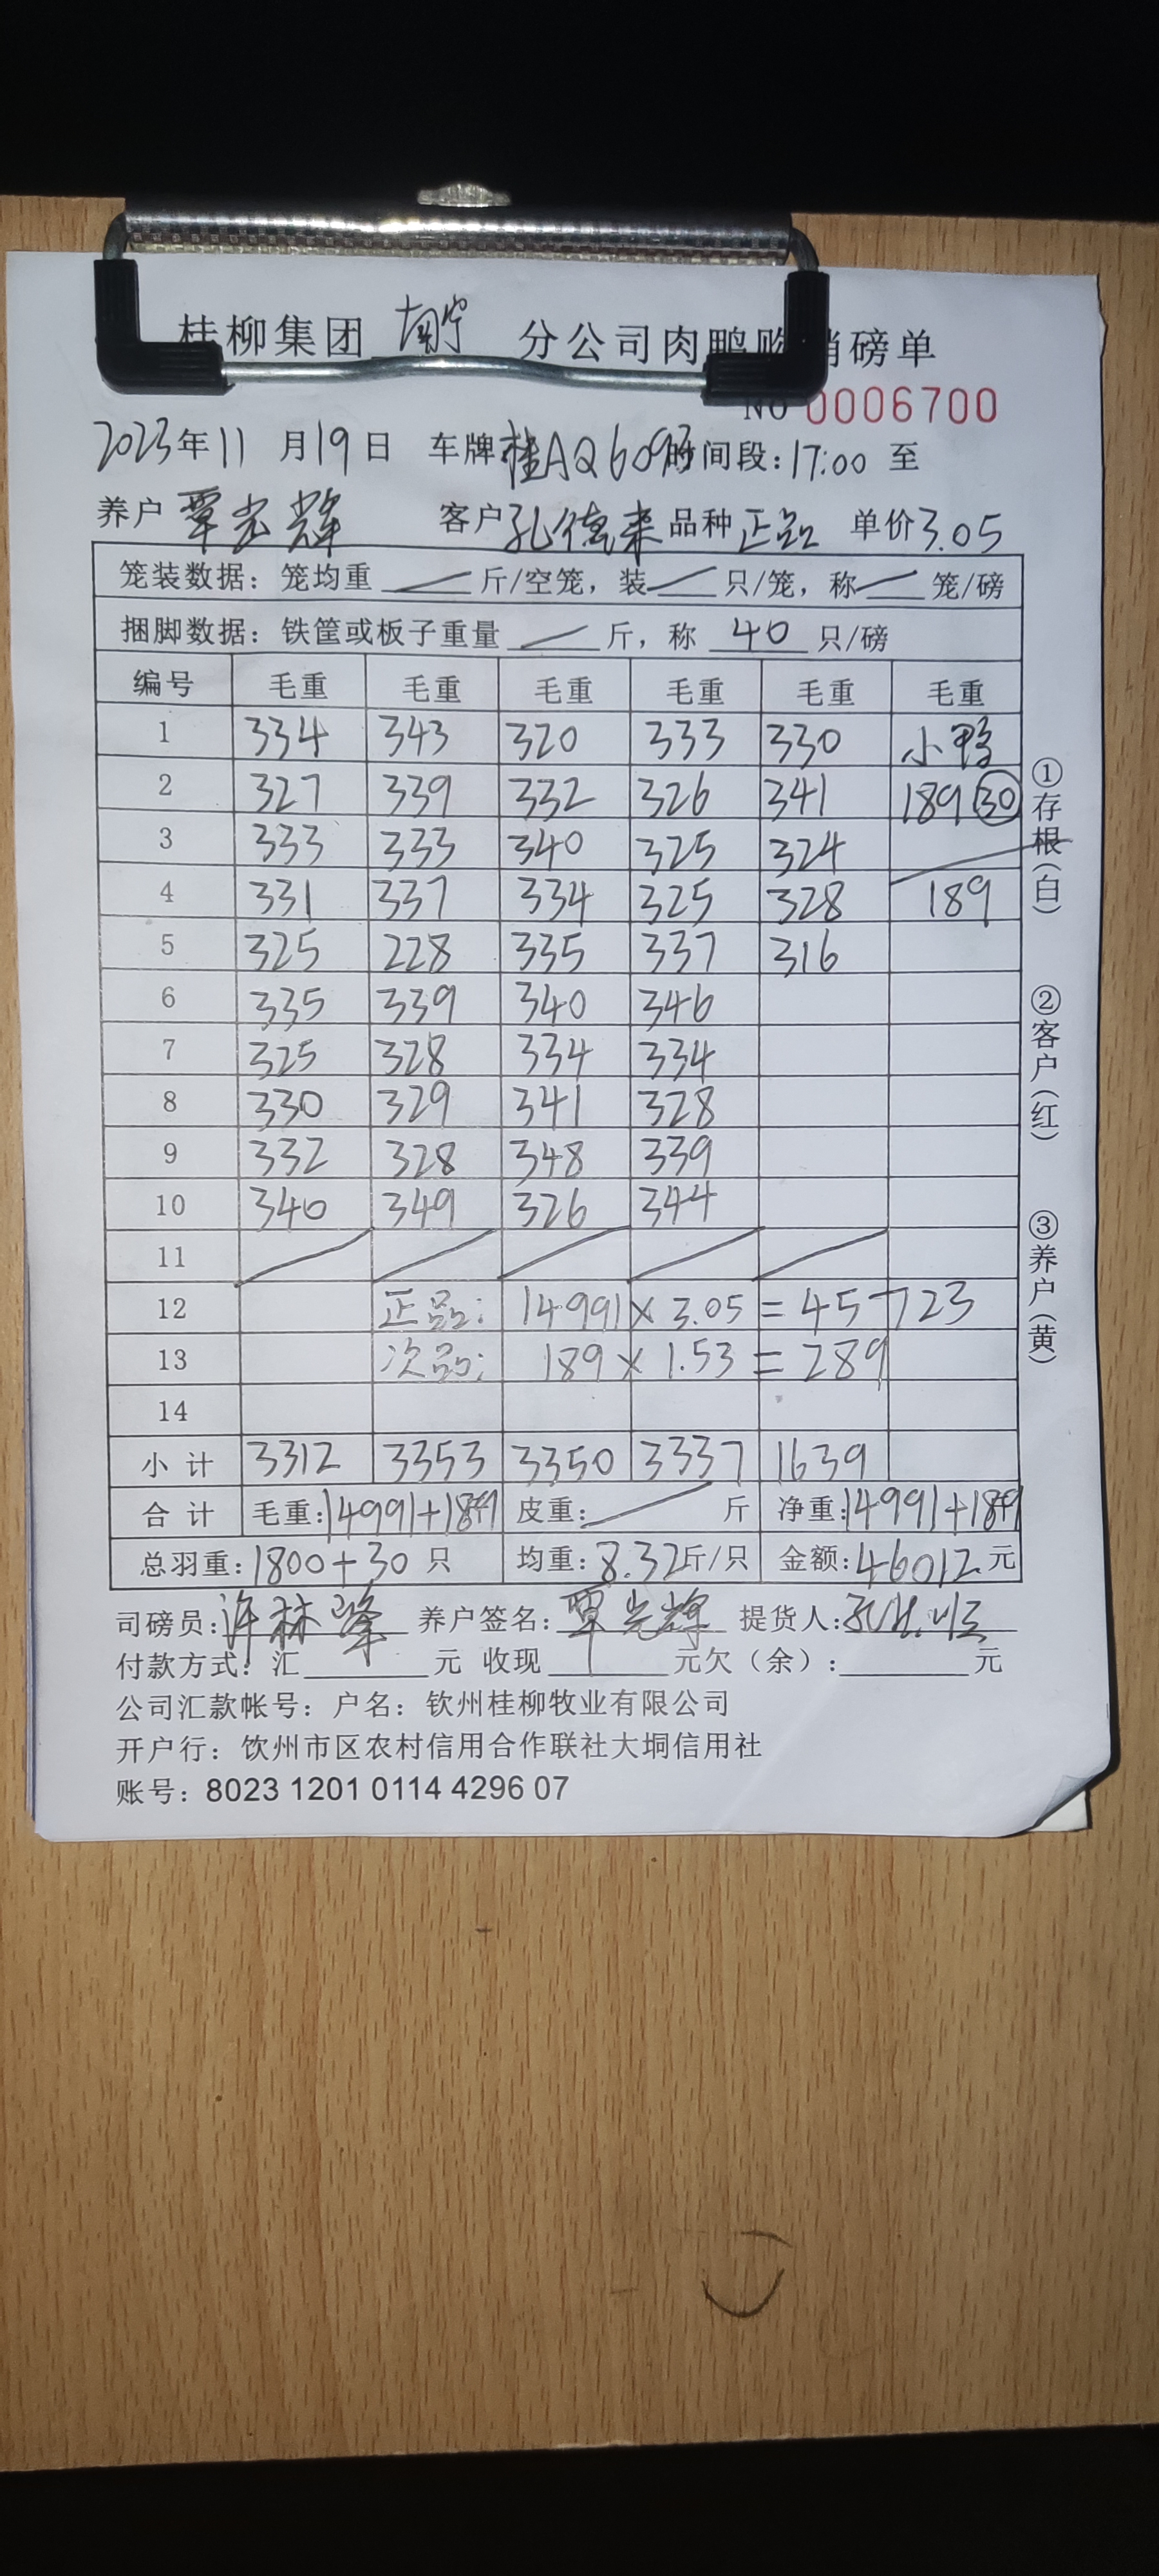 桂柳集团 南宁 分公司肉鸭购销磅单
NO 0006700
2023年11月19日 车牌桂AQ609 时间段：17:00 至
养户 覃光辉 客户 孔德来 品种 正品 单价3.05
笼装数据：笼均重 斤/空笼，装 只/笼，称 笼/磅
捆脚数据：铁筐或板子重量 斤，称 40 只/磅
编号 毛重 毛重 毛重 毛重 毛重 毛重
1 334 343 320 333 330 小鸭
2 327 339 332 326 341 189 30
3 333 333 340 325 324
4 331 337 334 325 328 189
5 325 228 335 337 316
6 335 339 340 346
7 325 328 334 334
8 330 329 341 328
9 332 328 348 339
10 340 349 326 344
11
12 正品： 14991 × 3.05 = 45723
13 次品： 189 × 1.53 = 289
14
小计 3312 3353 3350 3337 1639
合计 毛重：14991+189 皮重： 斤 净重：14991+189
总羽重：1800+30 只 均重：8.32斤/只 金额：46012元
司磅员：许林峰 养户签名：覃光辉 提货人：
付款方式：汇 元 收现 元欠（余）： 元
公司汇款帐号：户名：钦州桂柳牧业有限公司
开户行：钦州市区农村信用合作联社大垌信用社
账号：8023 1201 0114 4296 07
①存根（白）
②客户（红）
③养户（黄）